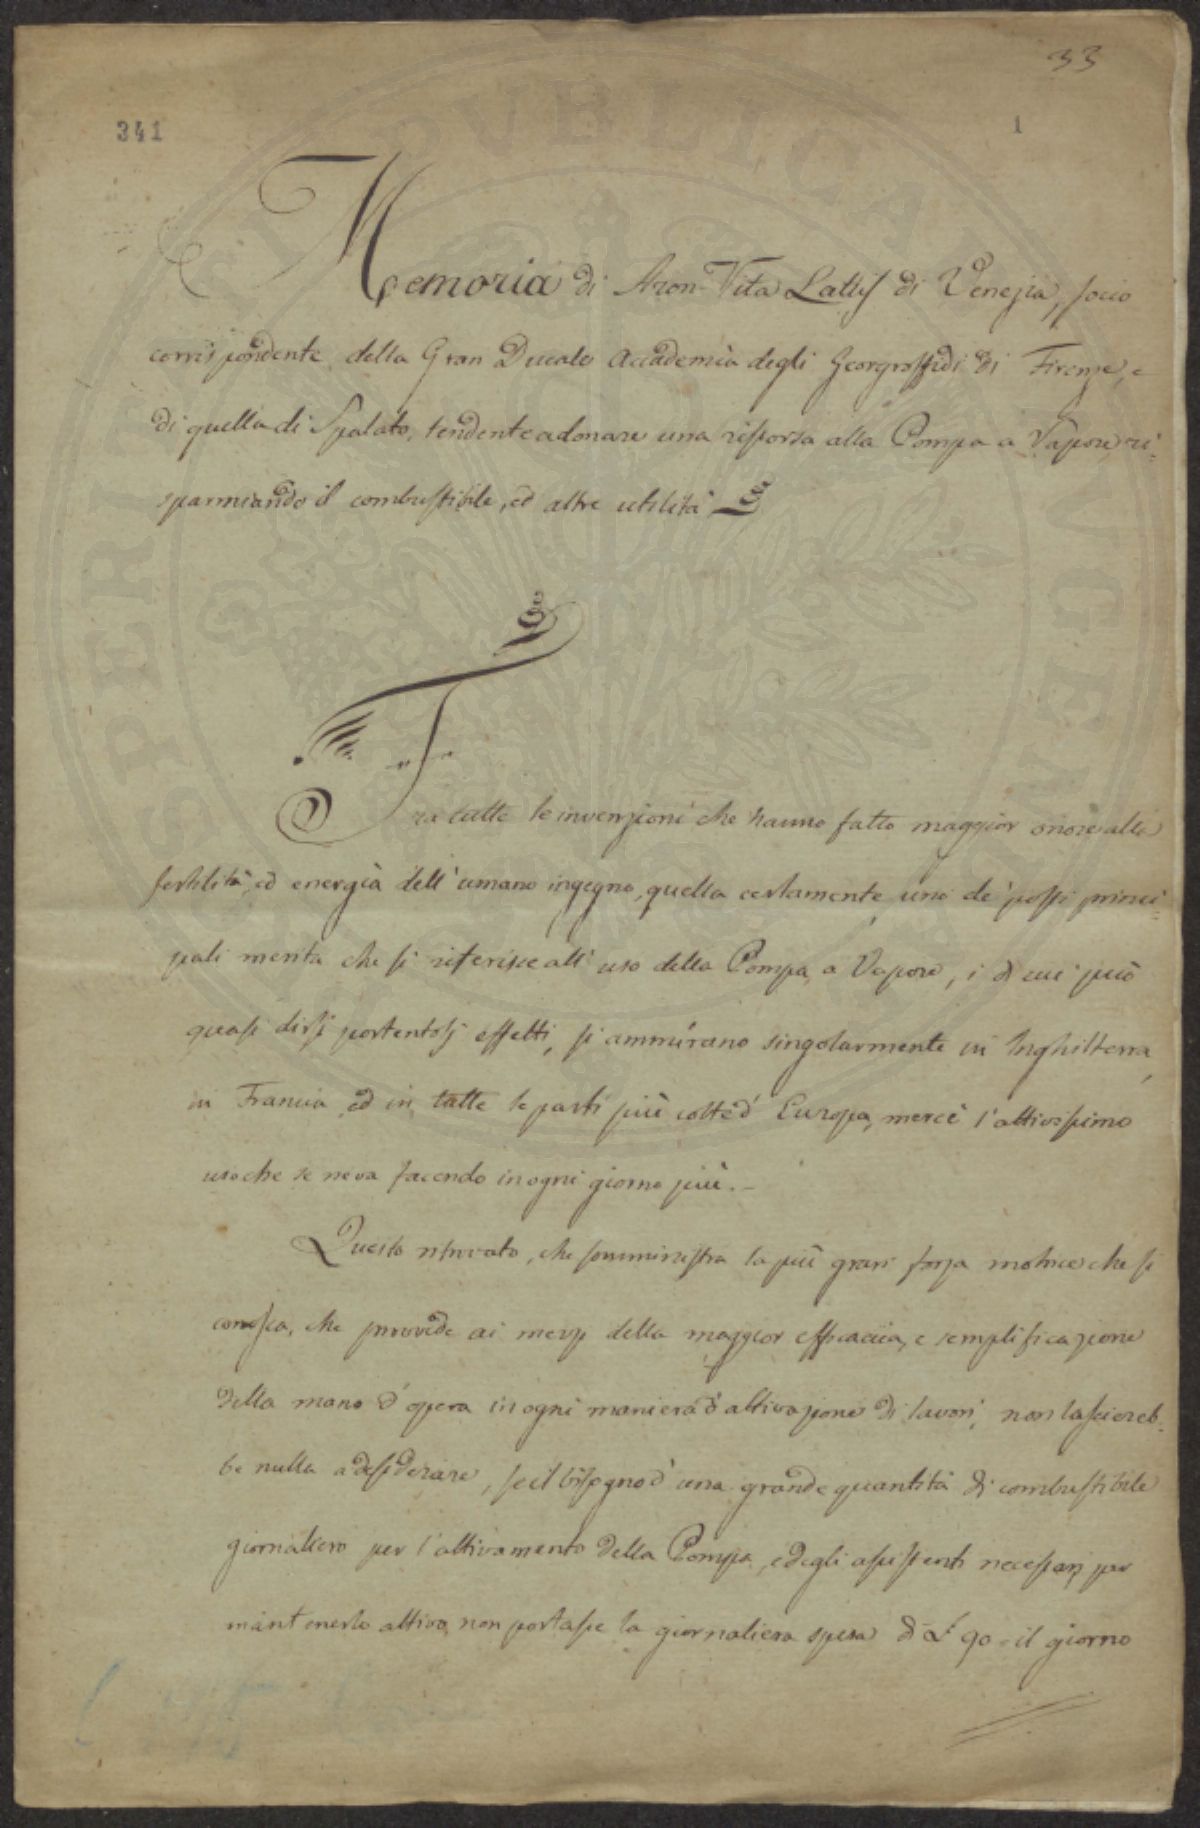 33
341
1
Memoria di Aron Vita Lattis di Venezia, socio
corrispondente della Gran Ducale Accademia degli Georgoffidi di Firenze, e
di quella di Spalato, tendente a donare una risforsa alla Pompa a Vapore ri=
sparmiando il combustibile, ed altre utilità
Tra tutte le invenzioni che hanno fatto maggior onore alla
fertilità, ed energia dell'umano ingegno, quella certamente uno de' posti princi=
pali merita che si riferisce all'uso della Pompa a Vapore, i di cui può
quasi dirsi portentosi effetti, si ammirano singolarmente in Inghilterra,
in Francia ed in tutte le parti più colte d'Europa, mercè l'attivissimo
uso che se ne va facendo in ogni giorno più.-
Questo ritrovato, che somministra la più gran forza motrice che si
conosca, che provvede ai mezzi della maggior efficacia, e semplificazione
della mano d'opera in ogni maniera d'attivazione di lavori, non lasciereb=
be nulla a desiderare, se il bisogno d'una grande quantità di combustibile
giornaliero per l'attivamento della Pompa, e degli assistenti necessarj per
mantenerla attiva non portasse la giornaliera spesa di £ 90 = il giorno